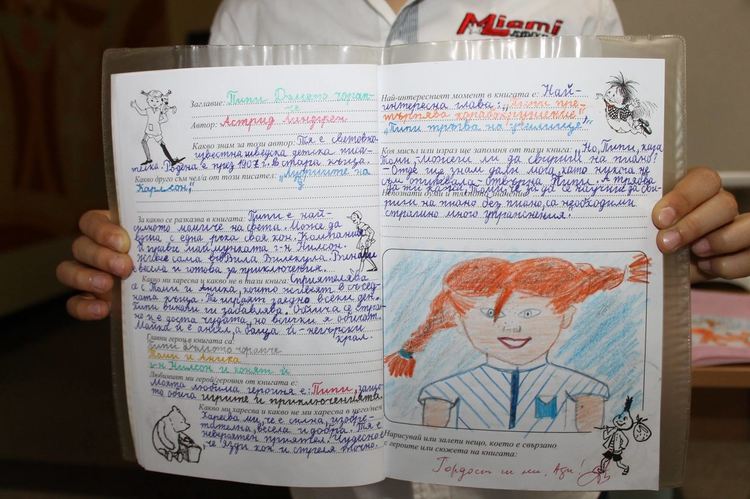 Miami
Заглавие: Пипи Дългото чорап-
че
Автор: Астрид Линдгрен.
Какво знам за този автор: Тя е световно
известна шведска детска писа-
телка. Родена е през 1907 г. в стара къща.
Какво друго съм чел/а от този писател: "Лудориите на
Карлсон"
За какво се разказва в книгата: Пипи е най-
силното момиче на света. Може да
вдига с една ръка своя кон. Компания
ѝ прави маймунката г-н Нилсон.
Живее сама във Вила Вилекула. Винаги
е весела и готова за приключения.
Какво ми харесва и какво не в тази книга: Сприятелява
се с Томи и Аника, които живеят в съсед-
ната къща. Те играят заедно всеки ден.
Пипи винаги ги забавлява. Облича се стран-
но и е доста чудата, но всички я обичат.
Майка ѝ е ангел, а баща ѝ - негърски
крал.
Главни герои в книгата са:
Пипи Дългото чорапче
Томи и Аника
г-н Нилсон и конят ѝ
Любимият ми герой/героиня от книгата е:
Моята любима героиня е: Пипи, защо-
то обича игрите и приключенията.
Какво ми харесва и какво не ми харесва в него/нея:
Харесва ми, че е силна, изобре-
тателна, весела и добра. Тя е
невероятен приятел. Чудесно е,
че язди кон и стреля точно.
Най-интересният момент в книгата е: Най-
интересна глава: "Пипи пре-
търпява корабокрушение"
"Пипи тръгва на училище"
Коя мисъл или израз ще запомня от книгата: Но, Пипи, каза
Томи, можеш ли да свириш на пиано?
- Отде ще знам дали мога, като никога не
съм опитвала - отвърна Пипи. А трябва
Непознати думи и тяхното значение:
да ти кажа, Томи, че за да се научиш да сви-
риш на пиано без пиано, са необходими
страшно много упражнения.
Нарисувай или залепи нещо, което е свързано
с героите или сюжета на книгата:
Гордост си ми, Ади!